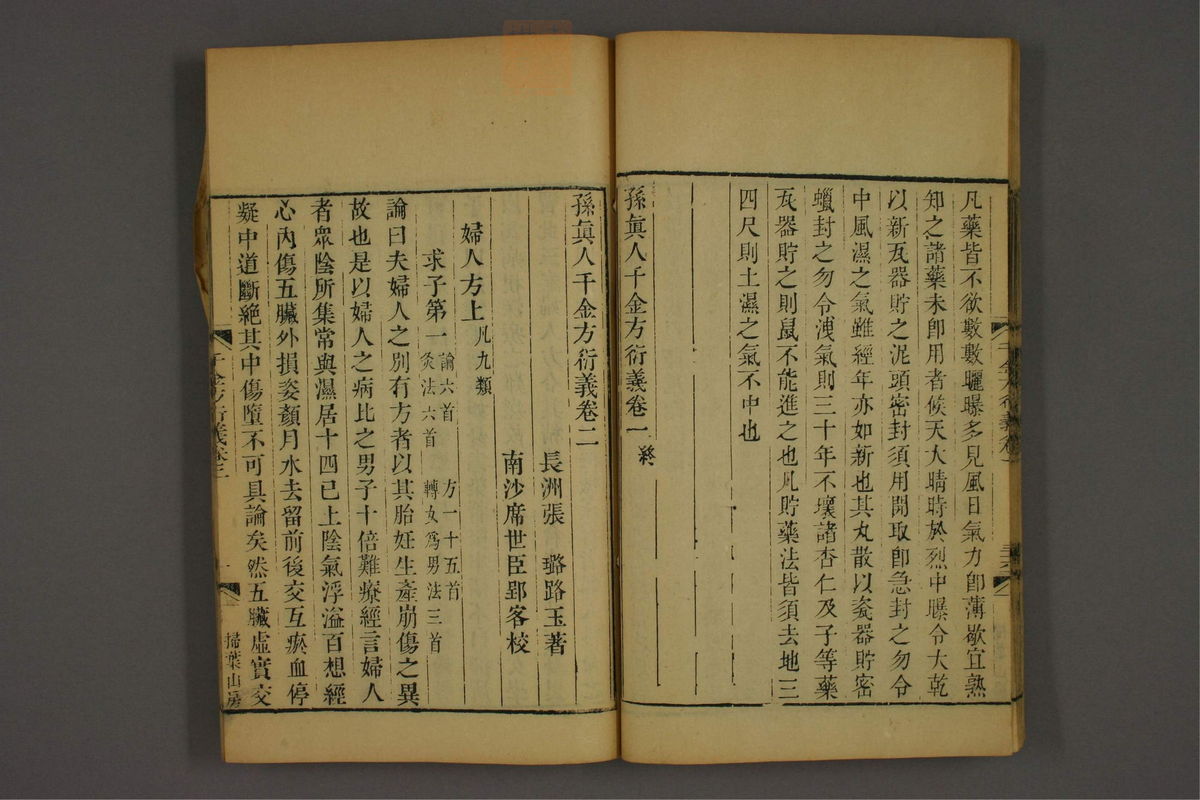 凡藥皆不欲數數曬曝多見風日氣力卽薄歇宜熟
知之諸藥未卽用者候天大晴時於烈中曝令大乾
以新瓦器貯之泥頭密封須用開取卽急封之勿令
中風濕之氣雖經年亦如新也其丸散以瓷器貯密
蠟封之勿令洩氣則三十年不壞諸杏仁及子等藥
瓦器貯之則鼠不能進之也凡貯藥法皆須去地三
四尺則土濕之氣不中也
孫眞人千金方衍義卷一 終
孫眞人千金方衍義卷二
長洲張 璐路玉著
南沙席世臣郢客校
婦人方上 凡九類
求子第一 論六首 方一十五首
灸法六首 轉女爲男法三首
論曰夫婦人之別有方者以其胎妊生產崩傷之異
故也是以婦人之病比之男子十倍難療經言婦人
者眾陰所集常與濕居十四已上陰氣浮溢百想經
心內傷五臟外損姿顏月水去留前後交互瘀血停
凝中道斷絶其中傷墮不可具論矣然五臟虛實交
千金方衍義卷二
一
掃葉山房